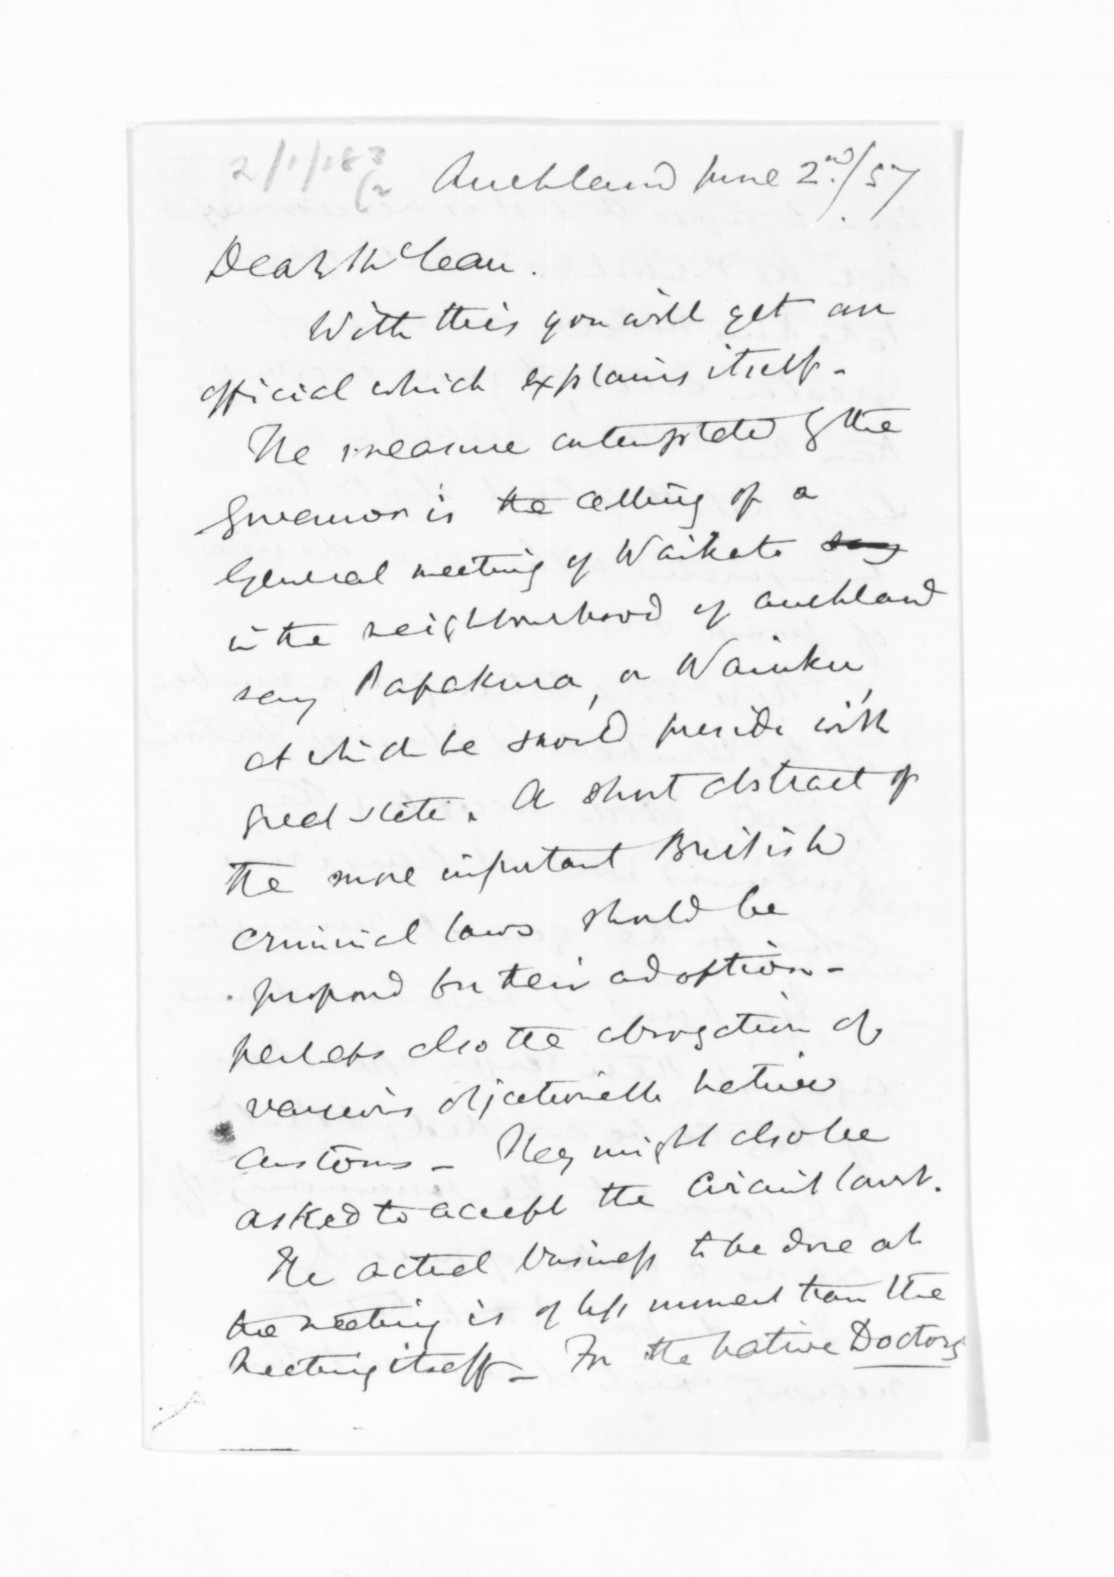 2/1/183
(2
Auckland June 2nd./57
Dear McLean.
With this you will get an
official which explains itself -
The measure contemplated by the
Governor is the calling of a
General meeting of Waikato say
in the neighbourhood of Auckland
say Papakura, or Waiuku,
at which he should preside with
great state. A short abstract of
the more important British
criminal laws should be
proposed for their adoption -
perhaps also the abrogation of
various objectionable native
customs - They might also be
asked to accept the Circuit Court.
The actual business to be done at
the meeting is of less moment than the
meeting itself - For the native Doctors